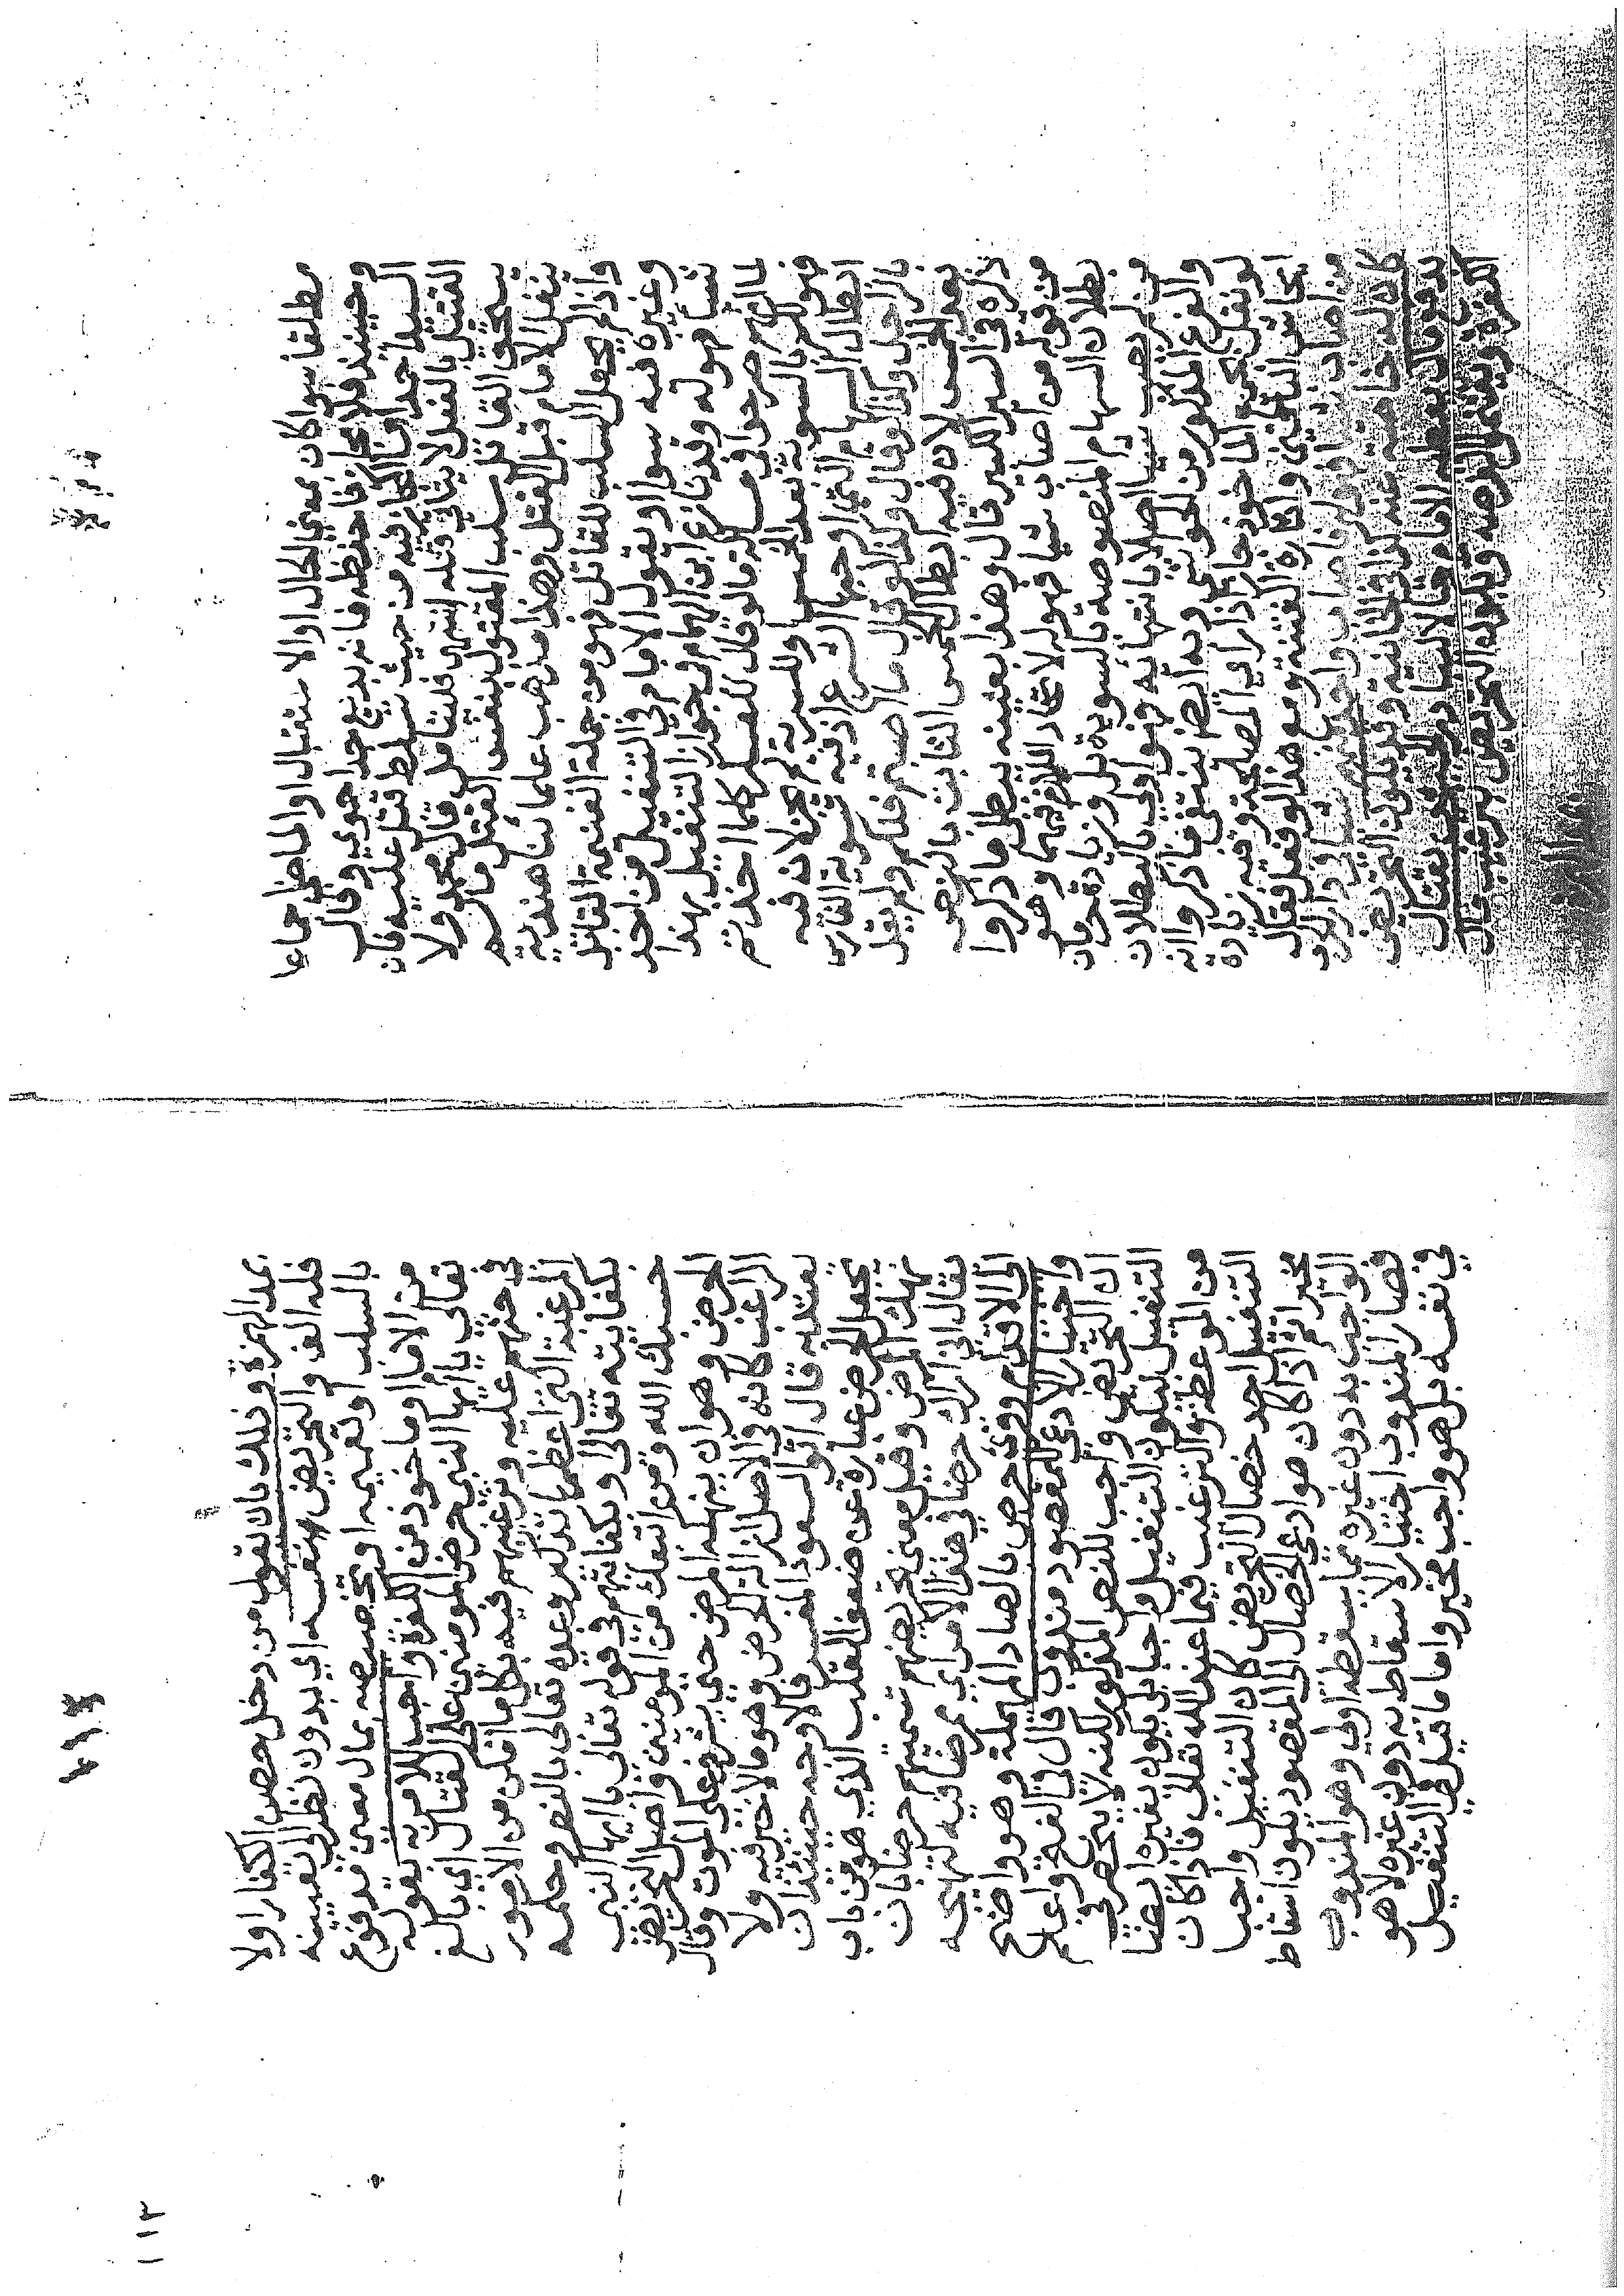 مطلقا سواكان بمعنى الحال اوالاستقبال اوالماضي جماعا
وحينئذ فلا مجاز فاحفظه فانه بديع جدا حموي وقال
السيد احمد وانما المجاز فيه من حيث تسلط قتل عليه فان
القتيل بالفعل لا يتاتى قتله انتهى فليتامل قال محمد ولا
يستحق القاتل سلب المقتول بنفس القتل مالم
ينفل الامام قبل القتل وهذا مذهب علمائنا هندية
واذا لم يجعل السلب للقاتل فهو من جملة الغنيمة القاتل
وغيره فيه سوا او يقول الامام في التنفيل من اخذ
شيا فهو له وقد نازع ابن الهمام في جواز التنفيل بهذا
بانهم صرحوا في مسالة مالو قال للعسكر كلما اخذتم
فهو لكم بالسوية بعد الخمس او للسرية لم يجز لان فيه
ابطال السهام التي اوجبها الشرع اذ فيه تسوية الفارس
بالراجل وكذا لو قال وكذا لو قال ما اصبتم فلكم ولم يقل
بعد الخمس لان فيه ابطال الخمس الثابت بالنص
ذكره في السير الكبير قال وهذا بعينه يبطل ما ذكروا
من قوله من اصاب شيا فهو له لاتحاد اللازم فيهما وهو
بطلان السهام المنصوصة بالسوية بل وزيادة حرمان
من لم يصب شيا اصلا بانتهائه فهو اولى بالبطلان
والفرع المذكور من الحواشي وبه ايضا ينتفي ما ذكروا انه
لو نفل بجميع الماخوذ جاز اذا راى المصلحة وفيه زيادة
ايحاش الباقين واثارة الفتنة
من اصاب
كان له خاصة عند وقد يكون التحريض
بدفع مال
١١٣
بمد الهمزة وذلك بان يقول من دخل حصن الكفار اولا
فله الف والتحريض بنفسه اي بدون نظر الى تعيينه
بالسلب او تعميمه او تخصيصه بمال معين مدفوع
من الامام او ماخوذ من الكفرة واجب للامر به بقوله
تعالى يا ايها النبي حرض المومنين على القتال اي بالغ
في حثهم عليه وترغيبهم فيه بكل ما امكن من الامور
المرغبة التي اعظمها تذكير وعده تعالى بالنصر وحكمه
بكفايته تعالى او بكفايتهم في قوله تعالى يا ايها النبي
حسبك الله ومن اتبعك من المومنين واصل التحريض
الحرض وهو ان ينهكه المرض حتى يشرف على الموت وقال
الراغب كانه في الاصل ازالة الحرض وهو ما لا خير فيه ولا
يعتد به قال ابو السعود المفسر فالاوجه حينئذ ان
يجعل الحرض عبارة عن ضعف القلب الذي هو من باب
نهك المرض وقيل معنى تحريضهم تسميتهم حرضا بان
يقال اني اراك حرضا في هذا الامر اي محرضا فيه لتهيجه
الى الاقدام وقرئ حرص بالصاد المهملة وهو واضح
واختيار الادعى للمقصود مندوب قال في الفتح واعلم
ان التحريض واجب للنص المذكور لكنه لا ينحصر في
التنفيل ليكون التنفيل واجبا بل يكون بغيره ايضا
من الموعظة والترغيب فيما عند الله تعالى فاذا كان
التنفيل احد خصال التحريض كان التنفيل واجبا
مخيرا ثم اذا كان هو ادعى الخصال الى المقصود يكون اسقاط
الواجب به دون غيره مما يسقطه اولى وهو المندوب
فصار المندوب اختيار الاسقاط به دون غيره لا هو
في نفسه بل هو واجب مخير واما ما قيل في التنفيل